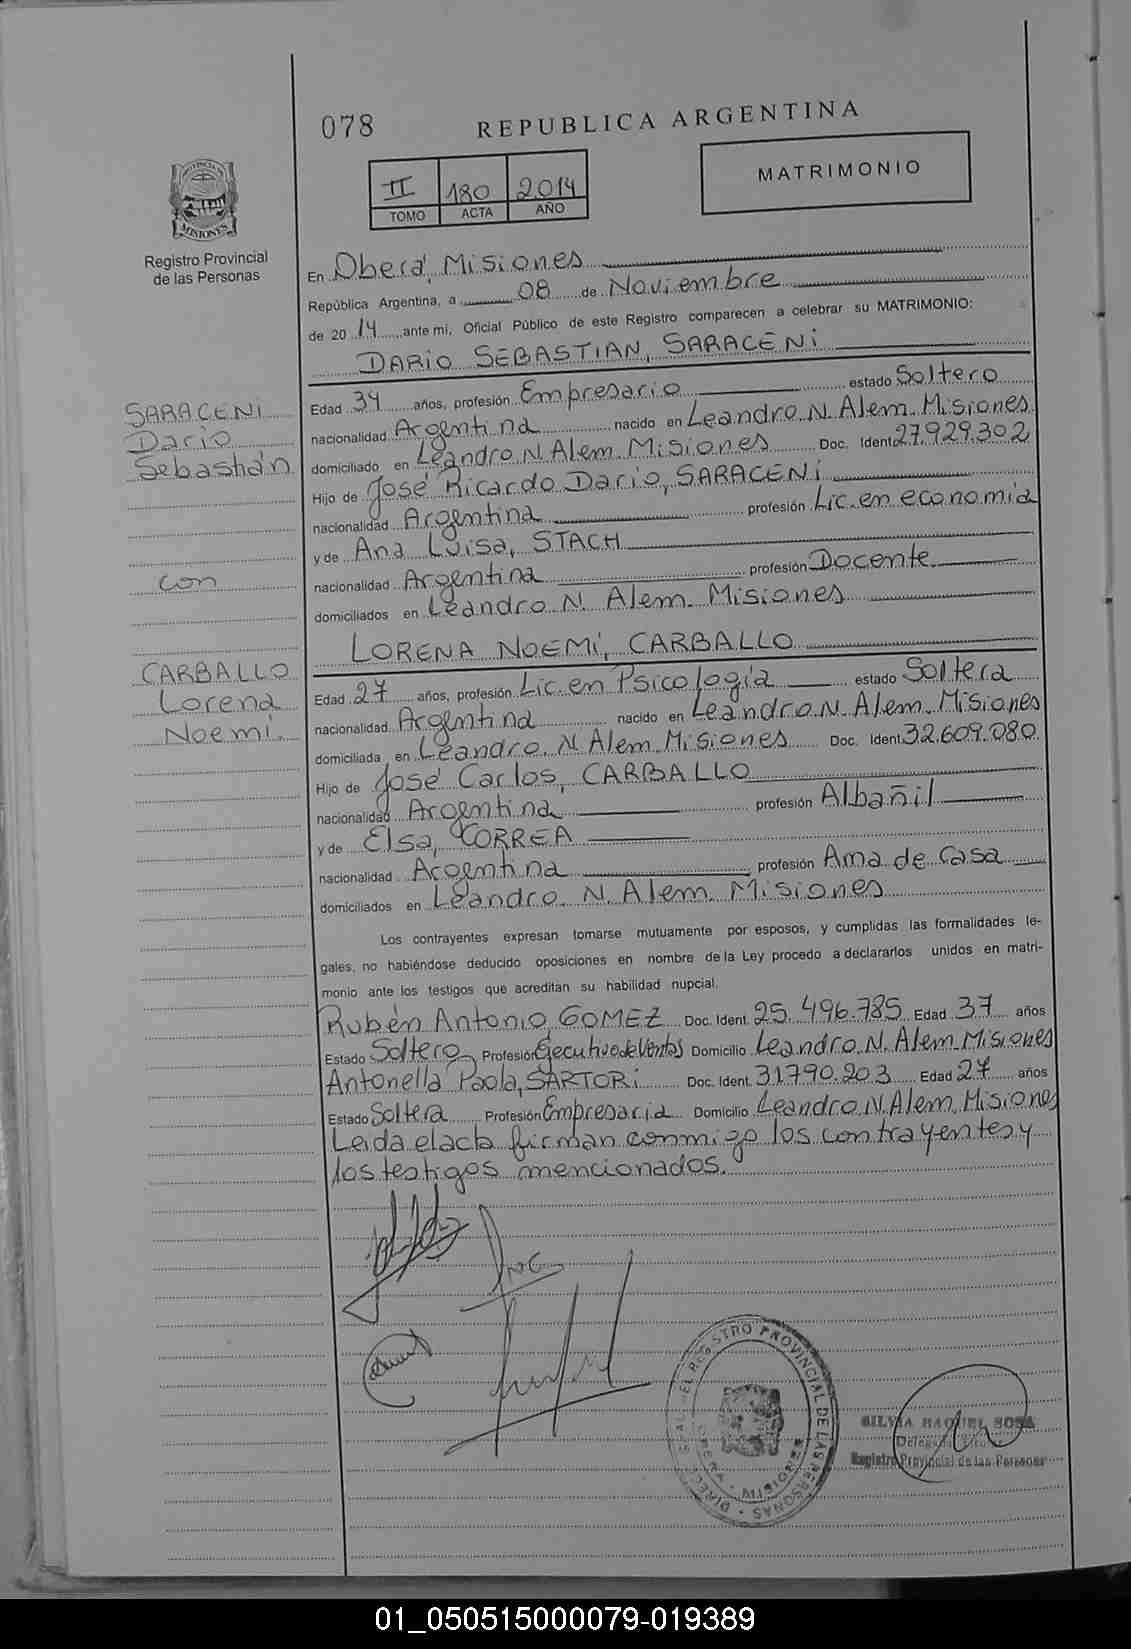 078
REPUBLICA ARGENTINA
II 180 2014
TOMO ACTA AÑO
MATRIMONIO
PROVINCIA DE
MISIONES
Registro Provincial
de las Personas
En Oberá, Misiones
República Argentina, a 08 de Noviembre
de 2014 ante mi, Oficial Público de este Registro comparecen a celebrar su MATRIMONIO:
DARIO SEBASTIAN, SARACENI
SARACENI
Dario
Sebastián
con
CARBALLO
Lorena
Noemi.
Edad 34 años, profesión Empresario estado Soltero
nacionalidad Argentina nacido en Leandro N. Alem. Misiones
domiciliado en Leandro N. Alem. Misiones Doc. Ident 27.929.302
Hijo de José Ricardo Dario, SARACENI
nacionalidad Argentina profesión Lic. en economia
y de Ana Luisa, STACH
nacionalidad Argentina profesión Docente
domiciliados en Leandro N. Alem. Misiones
LORENA NOEMI, CARBALLO
Edad 27 años, profesión Lic en Psicología estado Soltera
nacionalidad Argentina nacido en Leandro N. Alem. Misiones
domiciliada en Leandro. N. Alem. Misiones Doc. Ident 32.609.080
Hijo de José Carlos, CARBALLO
nacionalidad Argentina profesión Albañil
y de Elsa, CORREA
nacionalidad Argentina profesión Ama de Casa
domiciliados en Leandro. N. Alem. Misiones
Los contrayentes expresan tomarse mutuamente por esposos, y cumplidas las formalidades le-
gales, no habiéndose deducido oposiciones en nombre de la Ley procedo a declararlos unidos en matri-
monio ante los testigos que acreditan su habilidad nupcial.
Rubén Antonio, GOMEZ Doc. Ident. 25.496.785 Edad 37 años
Estado Soltero Profesión Ejecutivo de Ventas Domicilio Leandro. N. Alem. Misiones
Antonella Paola, SARTORI Doc. Ident. 31.790.203 Edad 27 años
Estado Soltera Profesión Empresaria Domicilio Leandro. N. Alem. Misiones
Leida el acta firman conmigo los contrayentes y
los testigos mencionados.
REGISTRO PROVINCIAL DE LAS PERSONAS
MISIONES
SILVIA RAQUEL SOSA
Registro Provincial de las Personas
01_050515000079-019389